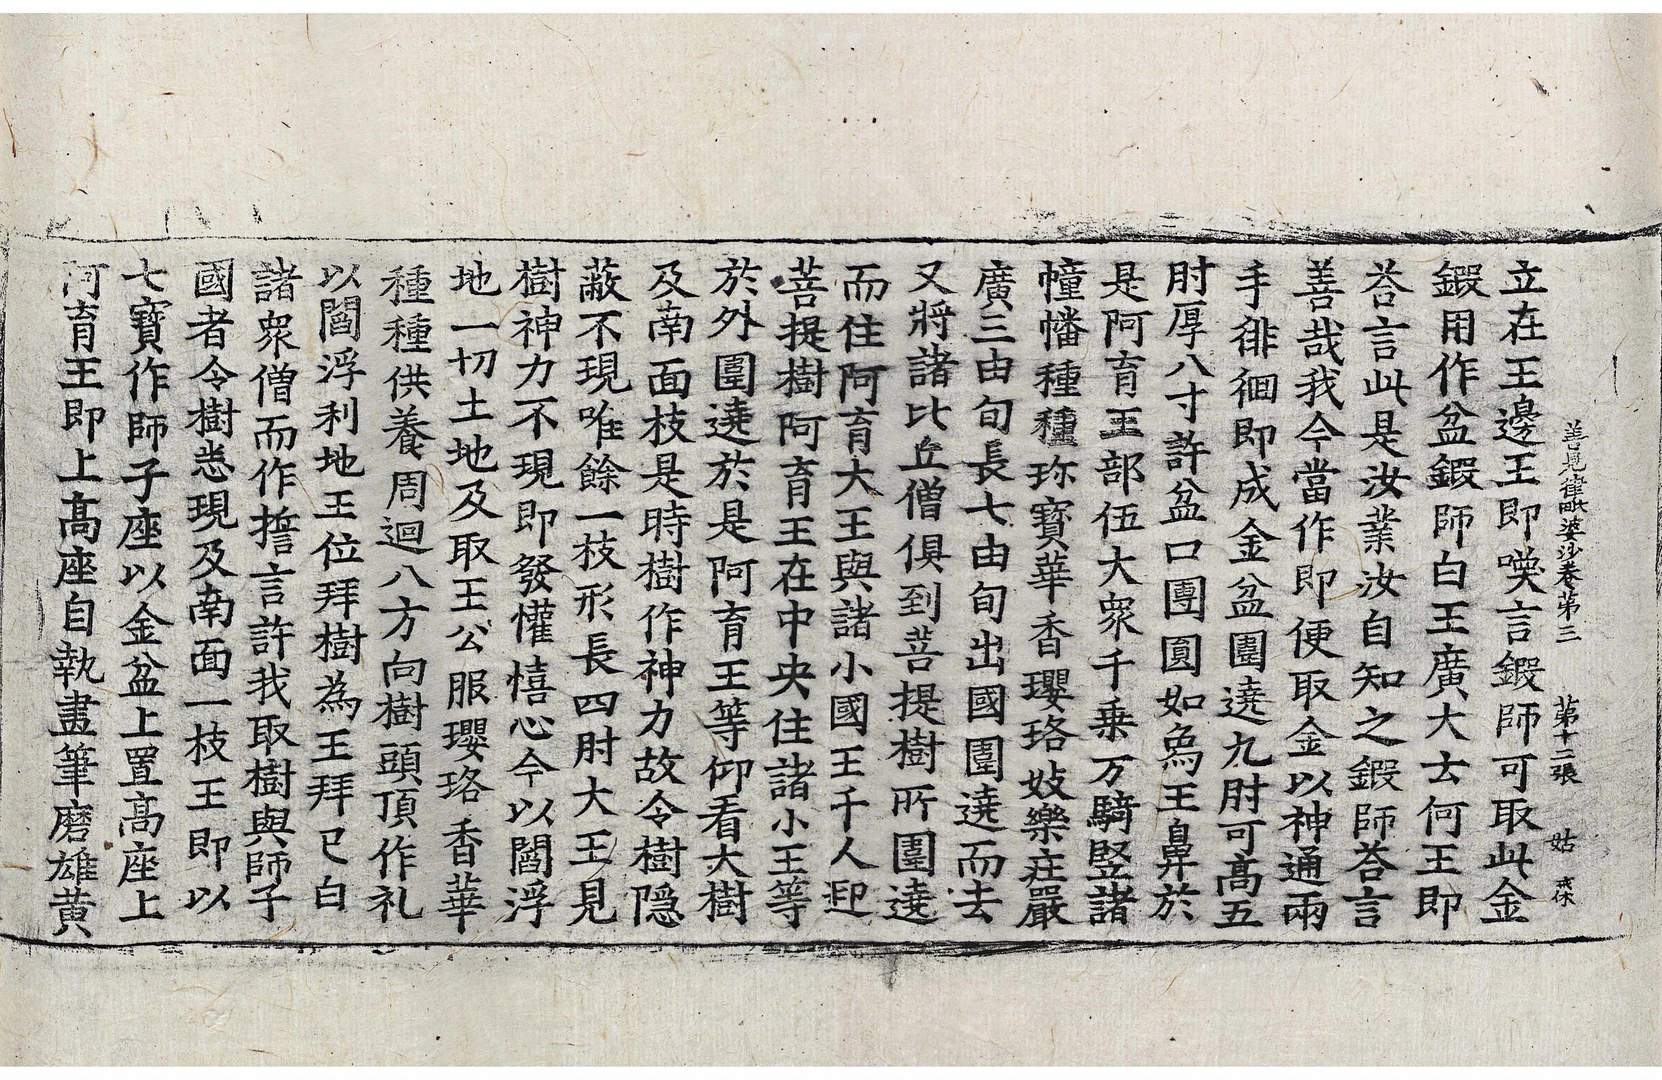 善見律毗婆沙卷第三　第十二張　姑　戒休
立在王邊王卽嘆言鍜師可取此金
鍜用作盆鍜師白王廣大云何王卽
荅言此是汝業汝自知之鍜師荅言
善哉我今當作卽便取金以神通兩
手徘徊卽成金盆團遶九肘可高五
肘厚八寸許盆口團圓如象王鼻於
是阿育王部伍大衆千乗万騎竪諸
幢幡種種珎寶華香瓔珞妓樂庄嚴
廣三由旬長七由旬出國圍遶而去
又將諸比丘僧俱到菩提樹所圍遶
而住阿育大王與諸小國王千人迎
菩提樹阿育王在中央住諸小王等
於外圍遶於是阿育王等仰看大樹
及南面枝是時樹作神力故令樹隱
蔽不現唯餘一枝形長四肘大王見
樹神力不現卽發懽憘心今以閻浮
地一切土地及取王公服瓔珞香華
種種供養周迴八方向樹頭頂作礼
以閻浮利地王位拜樹為王拜已白
諸衆僧而作擔言許我取樹與師子
國者令樹悉現及南面一枝王卽以
七寶作師子座以金盆上置髙座上
阿育王卽上髙座自執畫筆磨雄黄